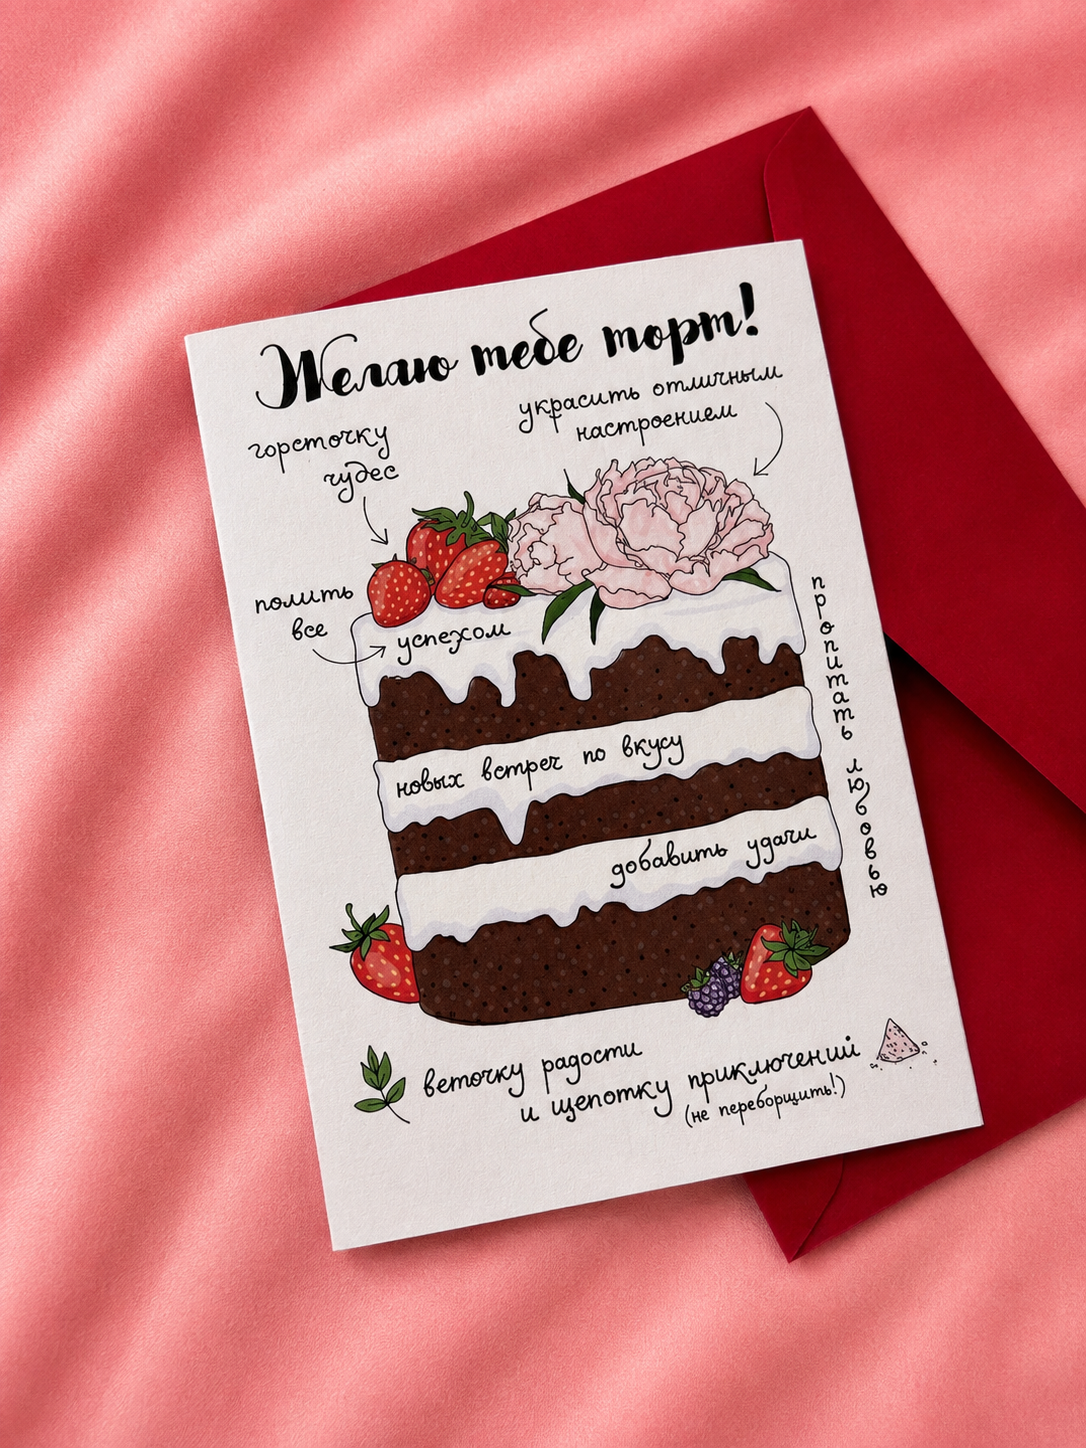 Желаю тебе торт!
украсить отличным
настроением
горсточку
чудес
полить
все
успехом
пропитать любовью
новых встреч по вкусу
добавить удачи
веточку радости
и щепотку приключений
(не переборщить!)